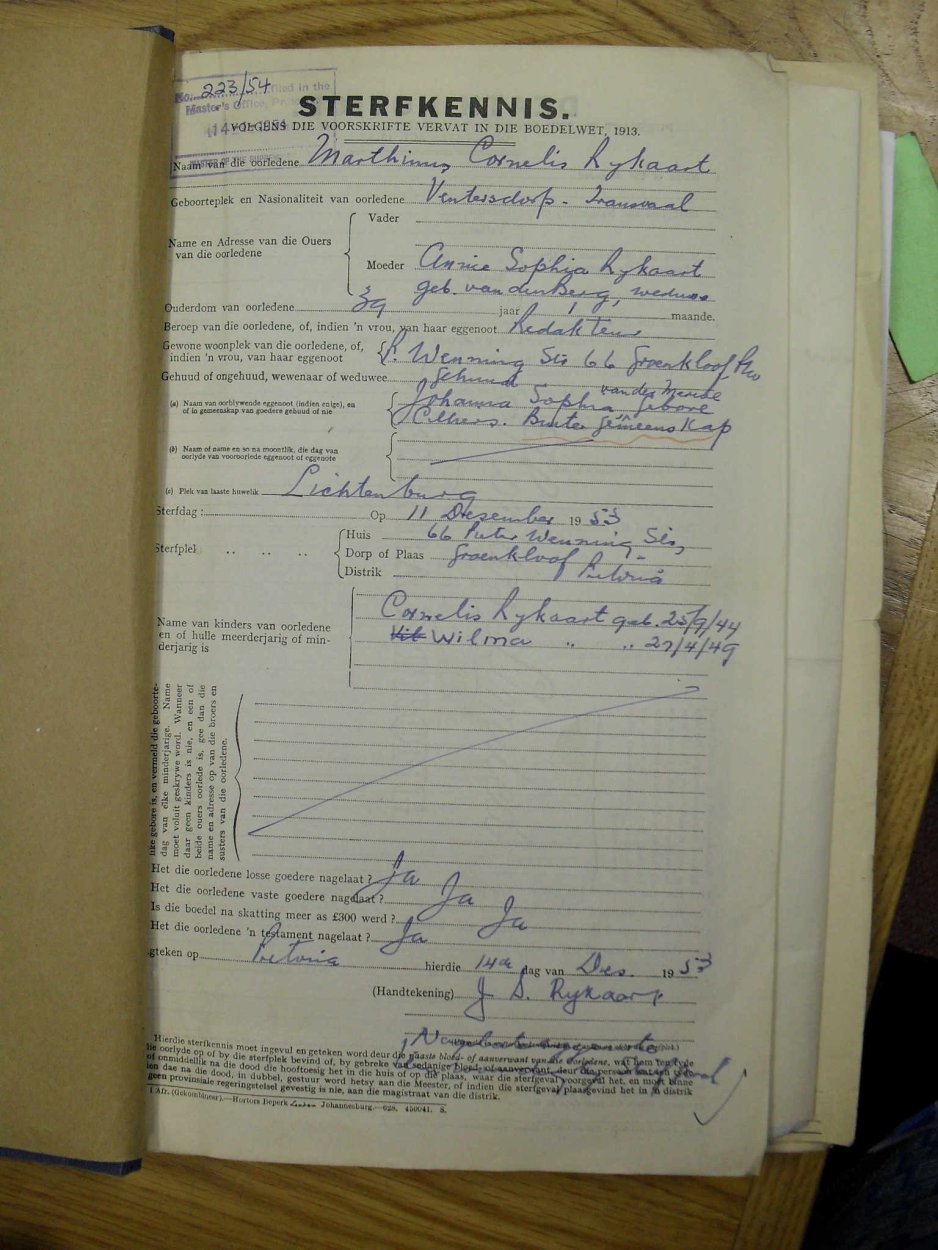 No. 223/54 filed in the
Master's Office,
14
STERFKENNIS.
VOLGENS DIE VOORSKRIFTE VERVAT IN DIE BOEDELWET, 1913.
Naam van die oorledene Marthinus Cornelis Rykaart
Geboorteplek en Nasionaliteit van oorledene Ventersdorp - Transvaal
Vader
Name en Adresse van die Ouers
van die oorledene
Moeder Annie Sophia Rykaart
geb. van den Berg, weduwe
Ouderdom van oorledene 39 jaar maande.
Beroep van die oorledene, of, indien 'n vrou, van haar eggenoot Redakteur
Gewone woonplek van die oorledene, of,
indien 'n vrou, van haar eggenoot P. Wenning Str 66 Groenkloof Pta
Gehuud of ongehuud, wewenaar of weduwee gehuud
(a) Naam van oorblywende eggenoot (indien enige), en
of in gemeenskap van goedere gehuud of nie
Johanna Sophia van der Merwe gebore
Cilliers. Buite gemeenskap
(b) Naam of name en so na moontlik, die dag van
oorlyde van vooroorlede eggenoot of eggenote
(c) Plek van laaste huwelik Lichtenburg
Sterfdag : Op 11 Desember 1953
Huis 66 Pieter Wenning Str,
Sterfplek Dorp of Plaas Groenkloof
Distrik Pretoria
Name van kinders van oorledene
en of hulle meerderjarig of min-
derjarig is
Cornelis Rykaart geb. 25/9/44
Wilma " " 27/4/49
like gebore is, en vermeld die geboorte-
dag van elke minderjarige. Name
moet voluit geskrywe word. Wanneer
daar geen kinders is nie, en een of
beide ouers oorlede is, gee dan die
name en adresse op van die broers en
susters van die oorledene.
Het die oorledene losse goedere nagelaat ? Ja
Het die oorledene vaste goedere nagelaat ? Ja
Is die boedel na skatting meer as £300 werd ? Ja
Het die oorledene 'n testament nagelaat ? Ja
geteken op Pretoria hierdie 14de dag van Des. 1953
(Handtekening) J S. Rykaart
Hierdie sterfkennis moet ingevul en geteken word deur die naaste bloed- of aanverwant van die oorledene, wat hem ten tyde
die oorlyde op of by die sterfplek bevind of, by gebreke van sedanige bloed- of aanverwant, deur die persoon wat
of onmiddellik na die dood die hooftoesig het in die huis of op die plaas, waar die sterfgeval voorgeval het, en moet binne
tien dae na die dood, in dubbel, gestuur word hetsy aan die Meester, of indien die sterfgeval plaasgevind het in 'n distrik
geen provinsiale regeringstelsel gevestig is nie, aan die magistraat van die distrik.
1 Afr. (Gekombineer).—Hortors Beperk Johannesburg.—628. 450041. S.